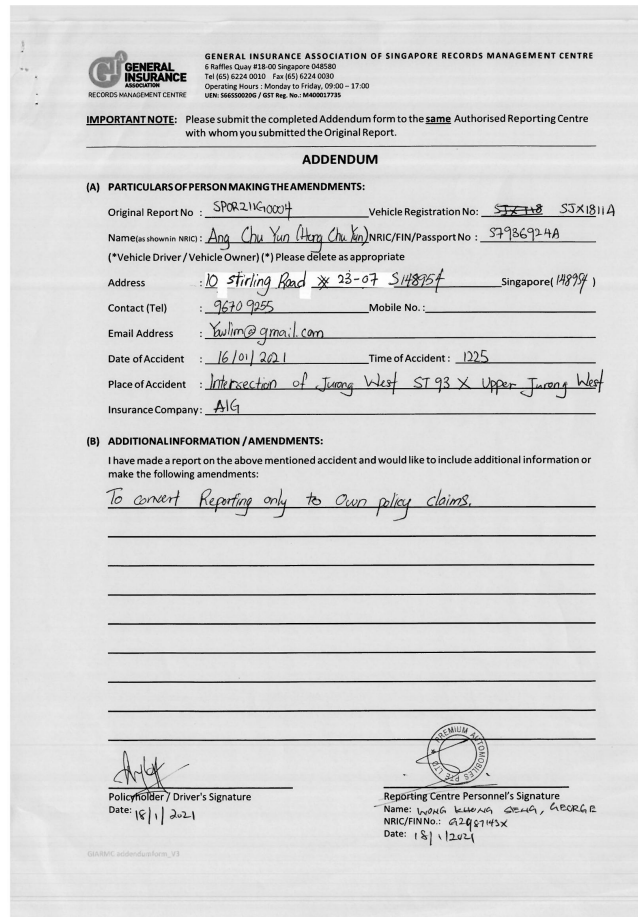 GENERAL INSURANCE ASSOCIATION OF SINGAPORE RECORDS MANAGEMENT CENTRE
6 Raffles Quay #18-00 Singapore 048580
Tel (65) 6224 0010 Fax (65) 6224 0030
Operating Hours : Monday to Friday, 09:00 – 17:00
UEN: S66SS0020G / GST Reg. No.: M400017735
GIA
GENERAL
INSURANCE
ASSOCIATION
RECORDS MANAGEMENT CENTRE
IMPORTANT NOTE: Please submit the completed Addendum form to the same Authorised Reporting Centre
with whom you submitted the Original Report.
ADDENDUM
(A) PARTICULARS OF PERSON MAKING THE AMENDMENTS:
Original Report No : SPOR211G0004 Vehicle Registration No: SJX1811A
Name(as shown in NRIC) : Ang Chu Yun (Hong Chu Yun) NRIC/FIN/Passport No : S7936924A
(*Vehicle Driver / Vehicle Owner) (*) Please delete as appropriate
Address : 10 Stirling Road # 23-07 S148954 Singapore( 148954 )
Contact (Tel) : 9670 9255 Mobile No. :
Email Address : Yawlim@gmail.com
Date of Accident : 16/01/2021 Time of Accident : 1225
Place of Accident : Intersection of Jurong West ST 93 X Upper Jurong West
Insurance Company : AIG
(B) ADDITIONAL INFORMATION / AMENDMENTS:
I have made a report on the above mentioned accident and would like to include additional information or
make the following amendments:
To convert Reporting only to Own policy claims.
PREMIUM AUTOMOBILES PTE LTD
Policyholder / Driver's Signature
Date: 18/1/2021
Reporting Centre Personnel's Signature
Name: WONG KHONG SENG, GEORGE
NRIC/FIN No.: G2987143X
Date: 18/1/2021
GIARMC addendumform_V3